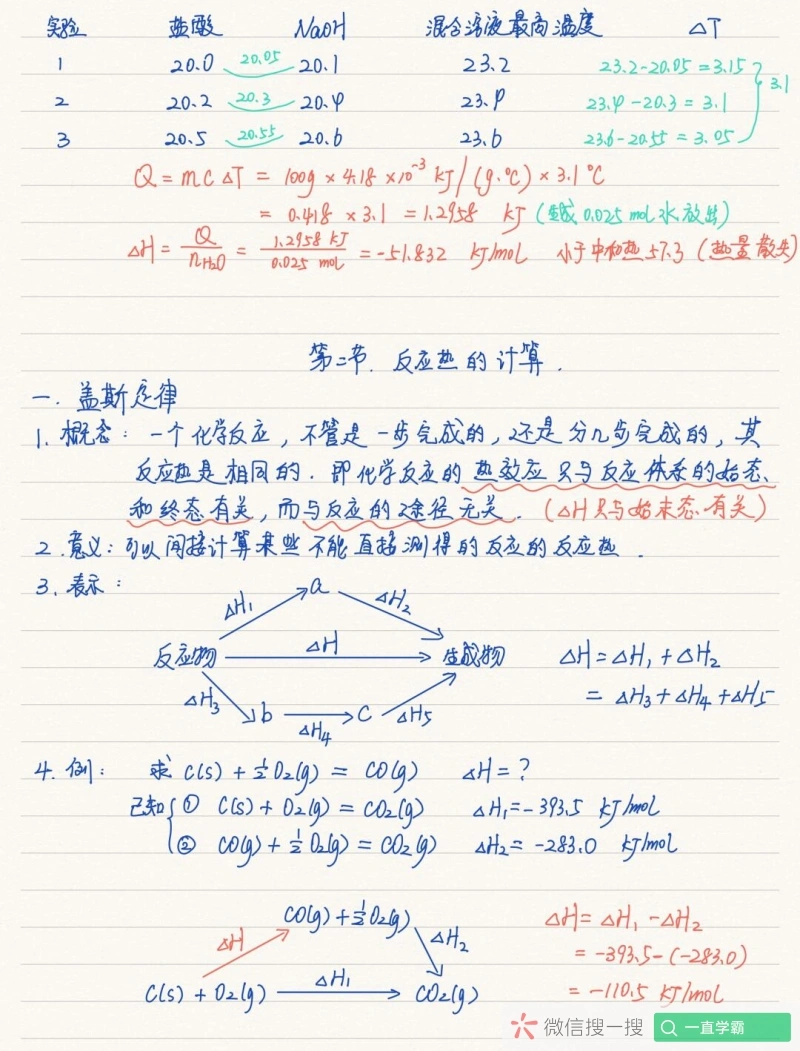 实验 盐酸 NaOH 混合溶液最高温度 △T
1 20.0 20.05 20.1 23.2 23.2-20.05=3.15
2 20.2 20.3 20.4 23.4 23.4-20.3=3.1
3.1
3 20.5 20.55 20.6 23.6 23.6-20.55=3.05
Q=mc△T=100g×4.18×10⁻³ kJ/(g·℃)×3.1℃
=0.418×3.1=1.2958 kJ(生成0.025mol水放出)
△H=Q/nH₂O=1.2958 kJ/0.025 mol=-51.832 kJ/mol 小于中和热57.3(热量散失)
第二节.反应热的计算.
一.盖斯定律
1.概念:一个化学反应,不管是一步完成的,还是分几步完成的,其
反应热是相同的.即化学反应的热效应只与反应体系的始态、
和终态有关,而与反应的途径无关.(△H只与始末态有关)
2.意义:可以间接计算某些不能直接测得的反应的反应热.
3.表示:
△H₁ a △H₂
反应物 △H 生成物 △H=△H₁+△H₂
△H₃ b △H₄ c △H₅ =△H₃+△H₄+△H₅
4.例: 求C(s)+½O₂(g)=CO(g) △H=?
已知{① C(s)+O₂(g)=CO₂(g) △H₁=-393.5 kJ/mol
② CO(g)+½O₂(g)=CO₂(g) △H₂=-283.0 kJ/mol
CO(g)+½O₂(g) △H=△H₁-△H₂
△H △H₂ =-393.5-(-283.0)
C(s)+O₂(g) △H₁ CO₂(g) =-110.5 kJ/mol
微信搜一搜 一直学霸